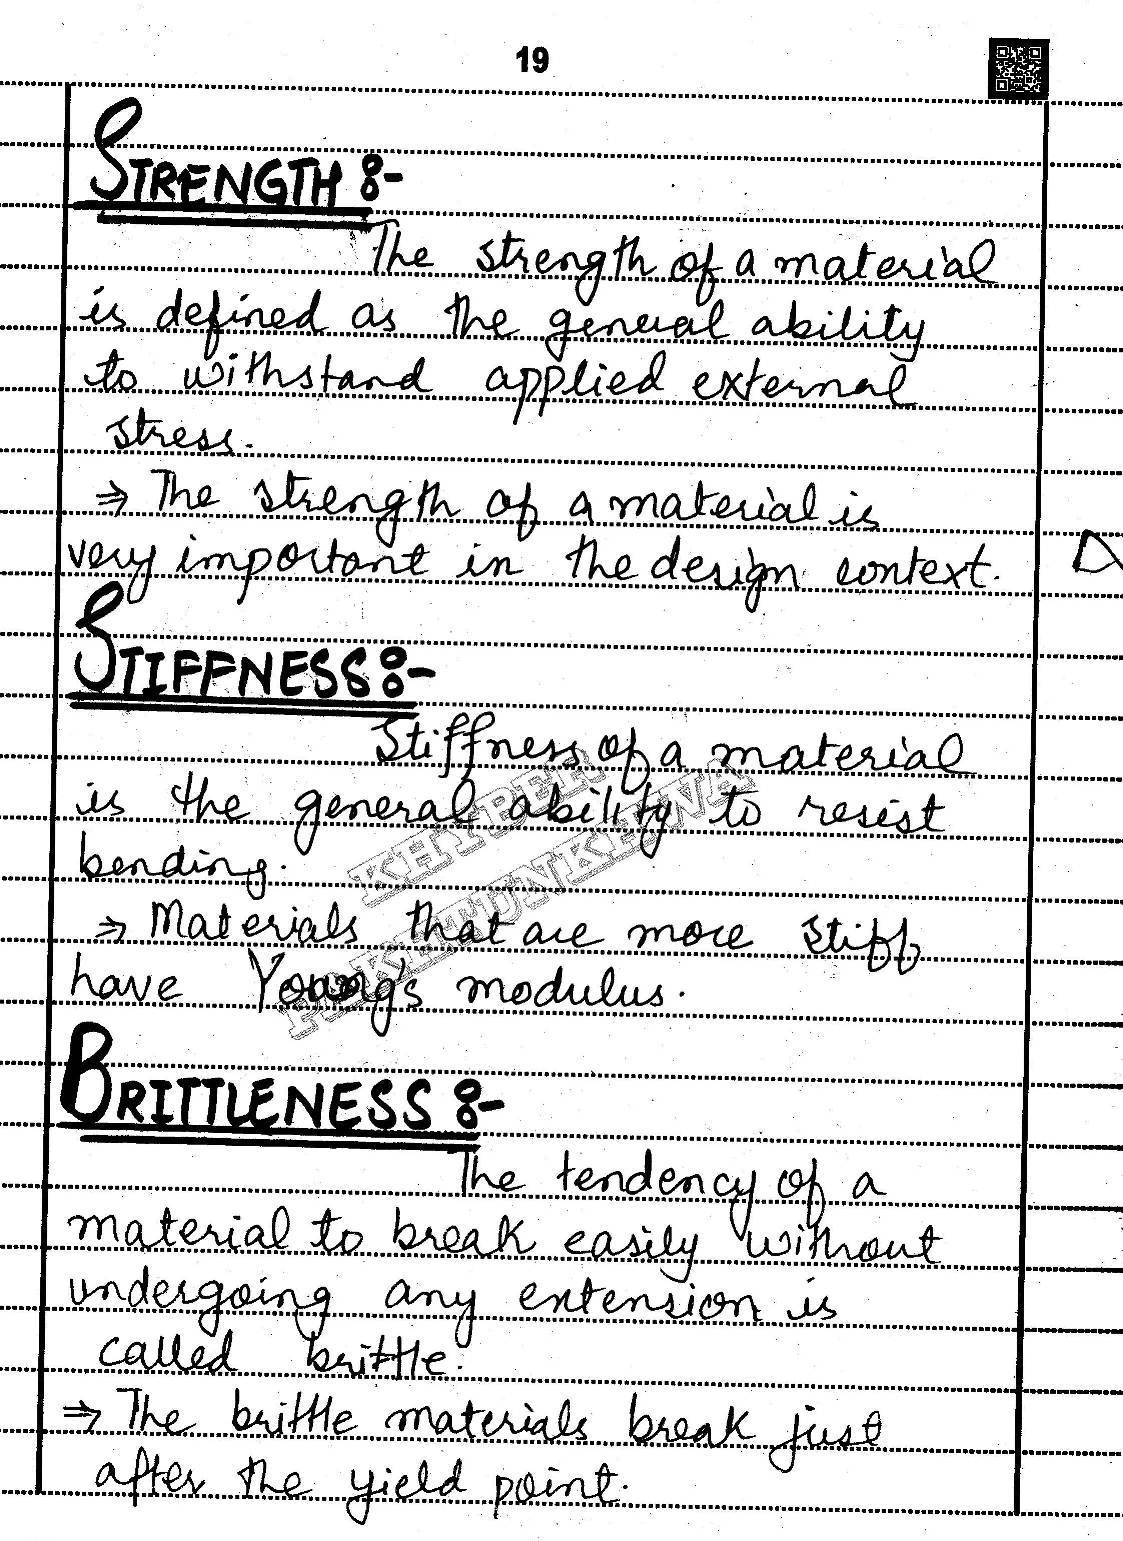 19
STRENGTH :-
The strength of a material
is defined as the general ability
to withstand applied external
stress.
⇒ The strength of a material is
very important in the design context.
STIFFNESS :-
Stiffness of a material
is the general ability to resist
bending.
KHYBER
PUKHTUNKHWA
⇒ Materials that are more stiff
have Young's modulus.
BRITTLENESS :-
The tendency of a
material to break easily without
undergoing any extension is
called brittle.
⇒ The brittle materials break just
after the yield point.